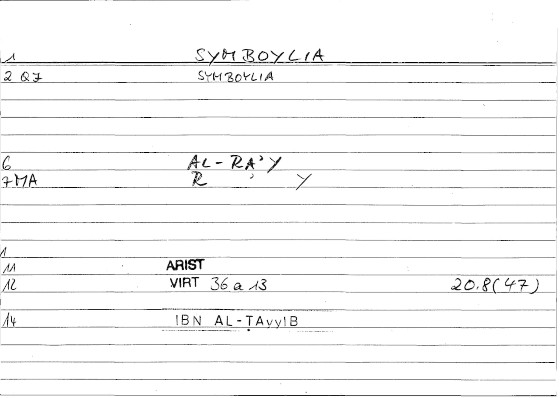 1 SYMBOYLIA
2 QJ SYMBOYLIA
6 AL-RA'Y
7MA R ' Y
1
11 ARIST
12 VIRT 36 a 13 20.8(47)
14 IBN AL-ṬAyyIB